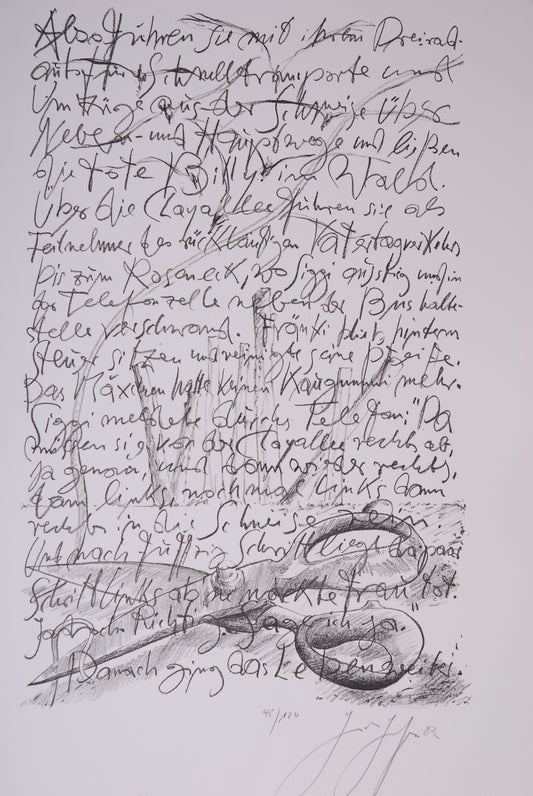 Also führen sie mit ihrem Dreirad-
auto für Schnelltransporte und
Umzüge aus der Schneise über
Neben- und Hauptwege und ließen
die tote Billy im Wald.
Über die Clayallee führen sie als
Teilnehmer des rückläufigen Vatertagverkehrs
bis zum Roseneck, wo Siggi ausstieg und in
der Telefonzelle neben der Bushalte-
stelle verschwand. Fränki blieb hinterm
Steuer sitzen und reinigte seine Pfeife.
Das Mäxchen hatte keinen Kaugummi mehr.
Siggi meldete durchs Telefon: "Da
müssen sie von der Clayallee rechts ab,
ja genau und dann wieder rechts,
dann links, nochmal links, dann
rechts in die Schneise rein
Und nach fuffzig Schritt liegt da paar
Schritt links ab ne nackte Frau tot.
Jaja Richtig. Sage ich ja."
Danach ging das Leben weiter.
45/120
82